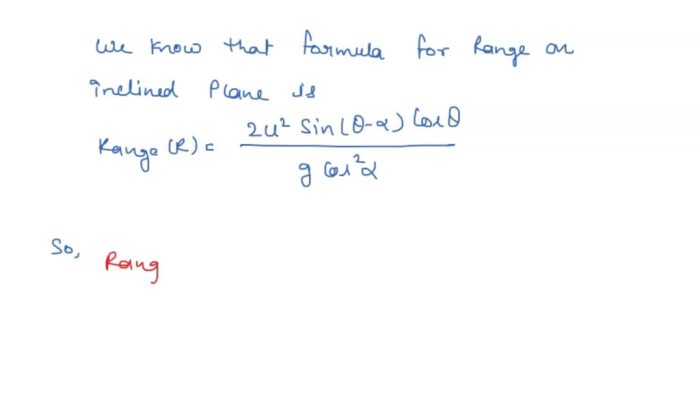 We know that formula for Range on
inclined Plane is
Range (R) = 2u² Sin(θ-α) Cosθ / g Cos²α
So, Rang